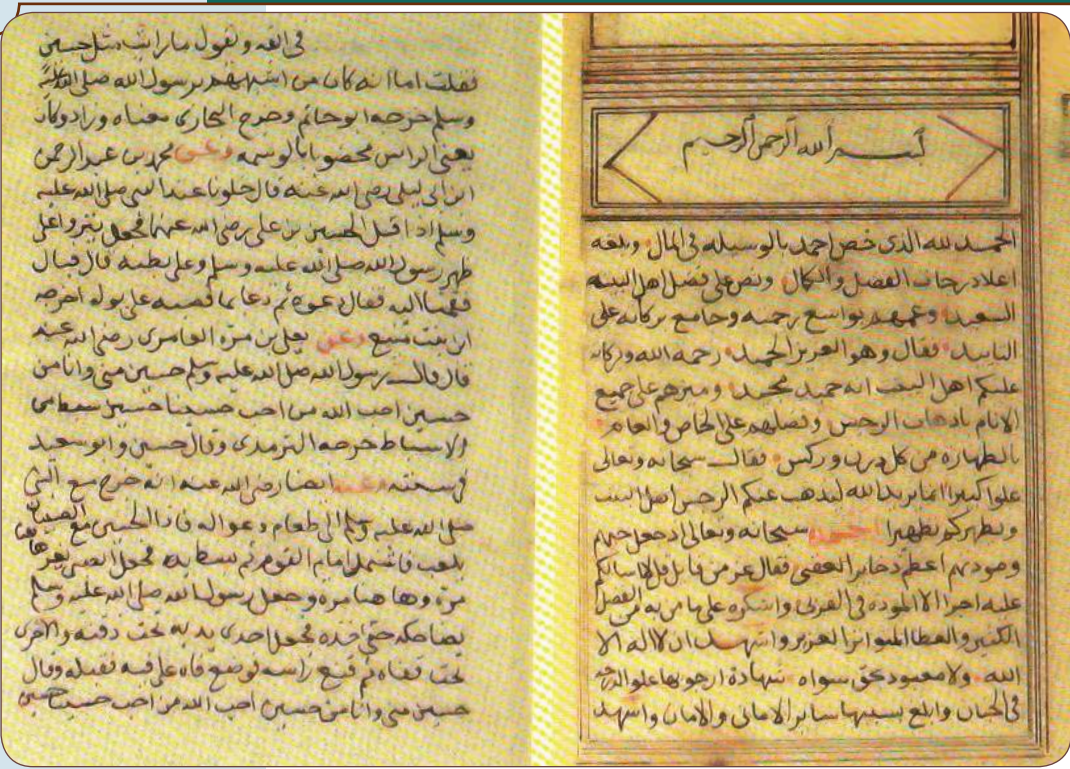 بسم الله الرحمن الرحيم
الحمد لله الذى خص احمد بالوسيله فى المال وبلغه
اعلا درجات الفضل والكمال ونص على فضل اهل البيته
السعيد وعمهم بواسع رحمته وجامع بركاته على
فقال وهو العزيز الحميد رحمة الله وبركاته
عليكم اهل البيت انه حميد مجيد وميزهم على جميع
الانام باذهاب الرجس وفضلهم على الخاص والعام
بالطهاره من كل درن وركس فقال سبحانه وتعالى
علوا كبيرا انما يريد الله ليذهب عنكم الرجس اهل البيت
ويطهركم تطهيرا احمده سبحانه وتعالى اذ جعل حبهم
وودهم اعظم ذخاير العقبى فقال عز من قايل قل لا اسالكم
عليه اجرا الا الموده فى القربى واشكره على ما من به من الفضل
الكثير والعطا المتواتر الغزير واشهد ان لا اله الا
الله ولا معبود بحق سواه شهادة ارجو بها علو
فى الجنان وابلغ بسببها ساير الامانى والامان واشهد
فى انفه ويقول ما رايت مثل حسين
فقلت اما انه كان من اشبههم برسول الله صلى الله عليه
وسلم خرجه ابو حاتم وخرج البخارى معناه وزاد وكان
يعنى الراس مخضوبا بالوسمه وعن محمد بن عبد الرحمن
ابن ابى ليلى رضى الله عنه قال جلونا عند النبى صلى الله عليه
وسلم اذ اقبل الحسين بن على رضى الله عنهما فجعل ينزوا على
ظهر رسول الله صلى الله عليه وسلم وعلى بطنه قال فبال
فقمنا اليه فقال دعوه ثم دعا بما فصبه على بوله اخرجه
ابن بنت منيع وعن يعلى بن مرة العامرى رضى الله عنه
قال قال رسول الله صلى الله عليه وسلم حسين منى وانا من
حسين احب الله من احب حسينا حسين سبط من
الاسباط خرجه الترمذى وقال حسن وابو سعيد
فى سننه وعنه ايضا رضى الله عنه انه خرج مع النبى
صلى الله عليه وسلم الى طعام دعوا له فاذا الحسين مع الصبيان
يلعب فاستهل امام القوم ثم بسط يده فجعل الصبى يفر هاهنا
مرة وهاهنا مرة وجعل رسول الله صلى الله عليه وسلم
يضاحكه حتى اخذه فجعل احدى يديه تحت دقنه والاخرى
تحت قفاه ثم قنع راسه فوضع فاه على فيه فقبله وقال
حسين منى وانا من حسين احب الله من احب حسينا حسين